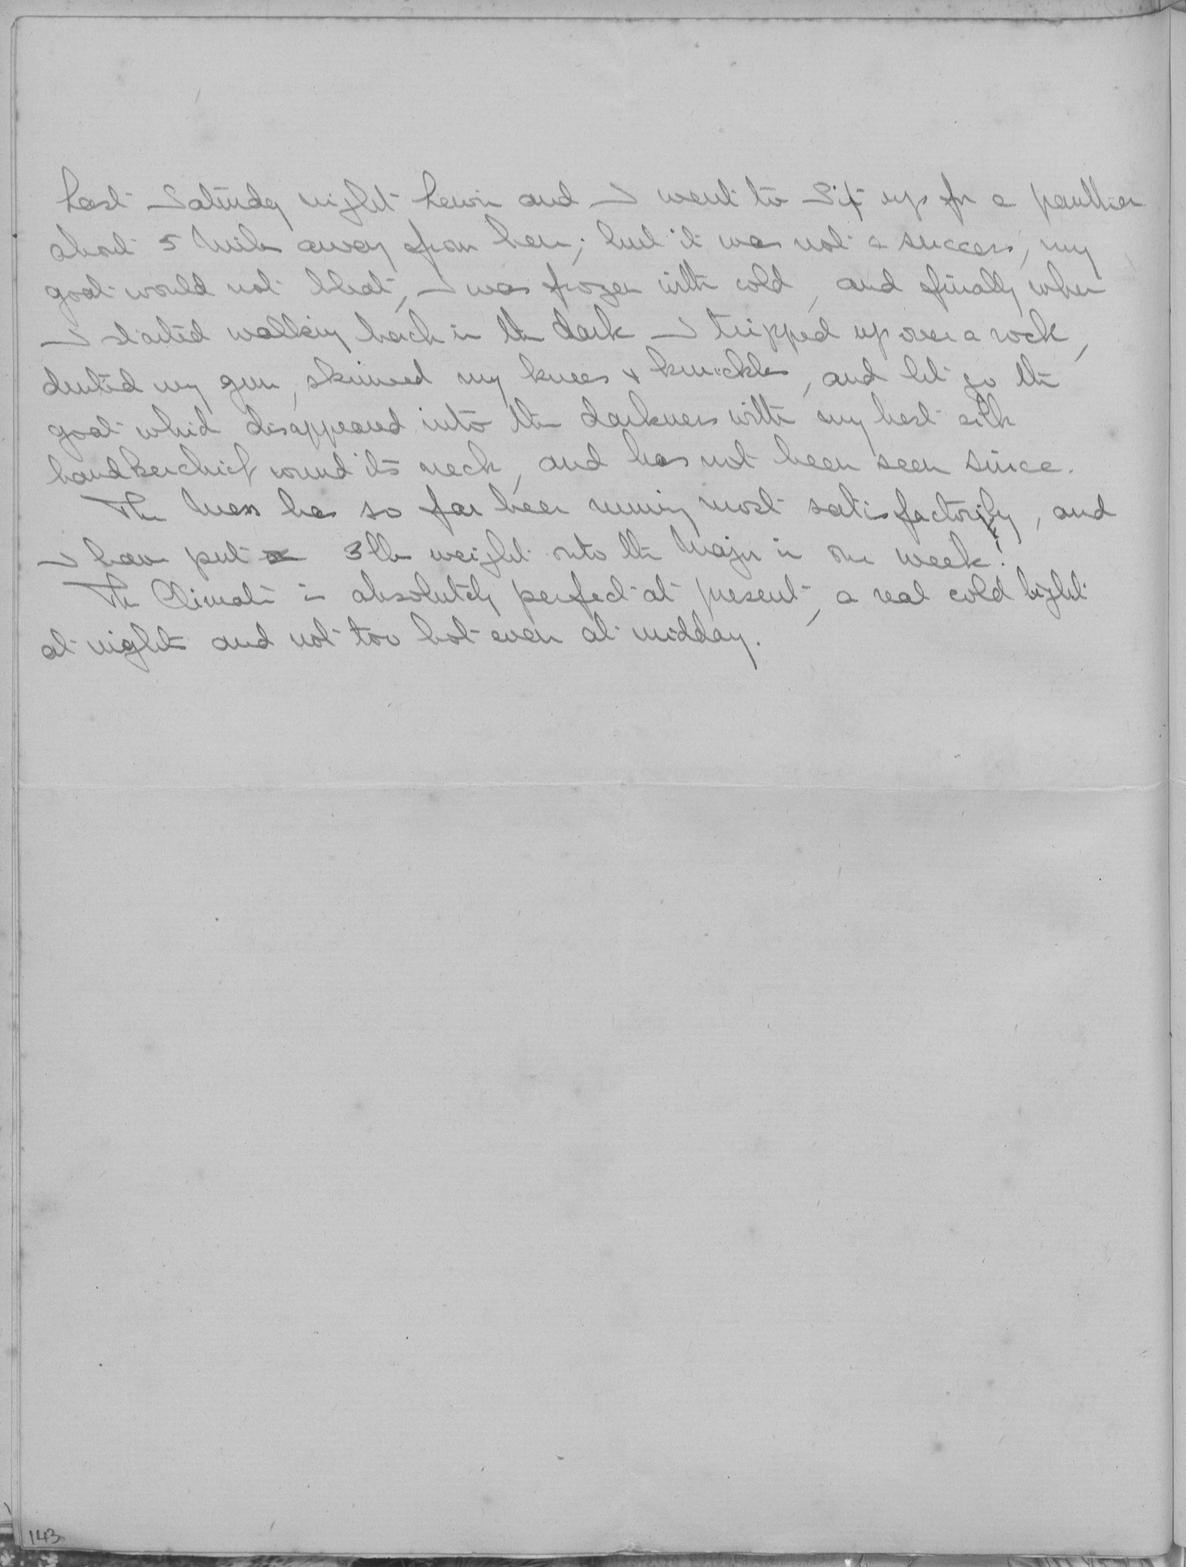 Last Saturday night Lewin and I went to sit up for a panther
about 5 Miles away from here; but it was not a success, my
goat would not bleat, I was frozen with cold, and finally when
I started walking back in the dark I tripped up over a rock,
dented my gun, skinned my knees & knuckles, and let go the
goat which disappeared into the darkness with my best silk
handkerchief round its neck, and has not been seen since.
The Mess has so far been running most satisfactorily, and
I have put 3 lbs weight onto the Major in one week!
The Climate is absolutely perfect at present, a real cold bight
at nights and not too hot even at midday.
143